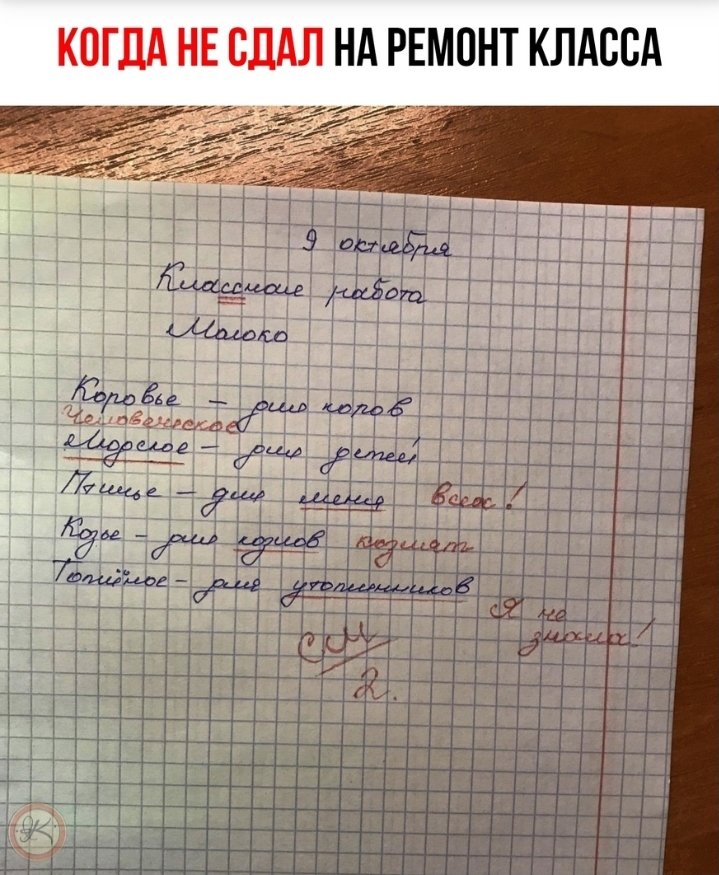 КОГДА НЕ СДАЛ НА РЕМОНТ КЛАССА
9 октября
Классная работа
Молоко
Коровье – для коров
Человеческое
Людское – для детей
Птичье – для меня всех!
Козье – для козлов козлят
Топлёное – для утопленников
Я не
знала!
см/2.
ЯК